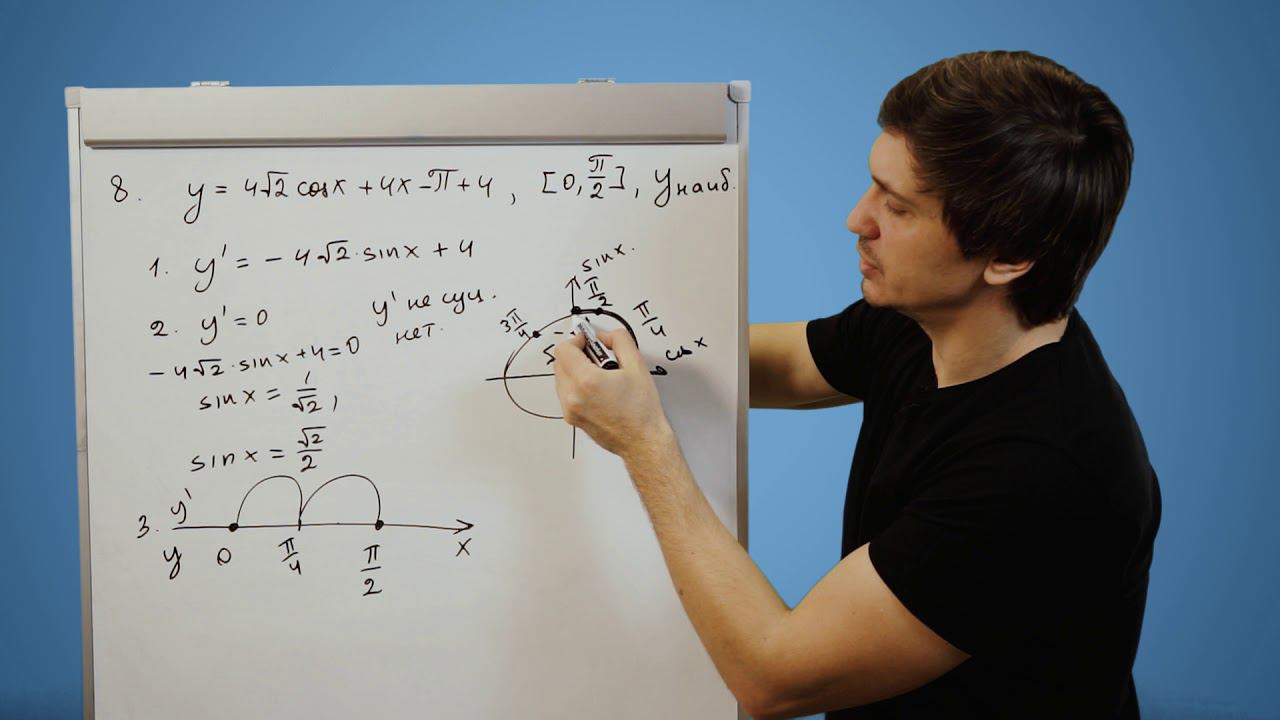 8. y = 4√2 cosx + 4x - π + 4, [0, π/2], y наиб.
1. y' = - 4√2 · sinx + 4
2. y' = 0
y' не сущ.
нет.
- 4√2 · sinx + 4 = 0
sinx = 1/√2,
sinx = √2/2
3. y'
y 0 π/4 π/2 x
sinx.
π/2
3π/4
π/4
cosx